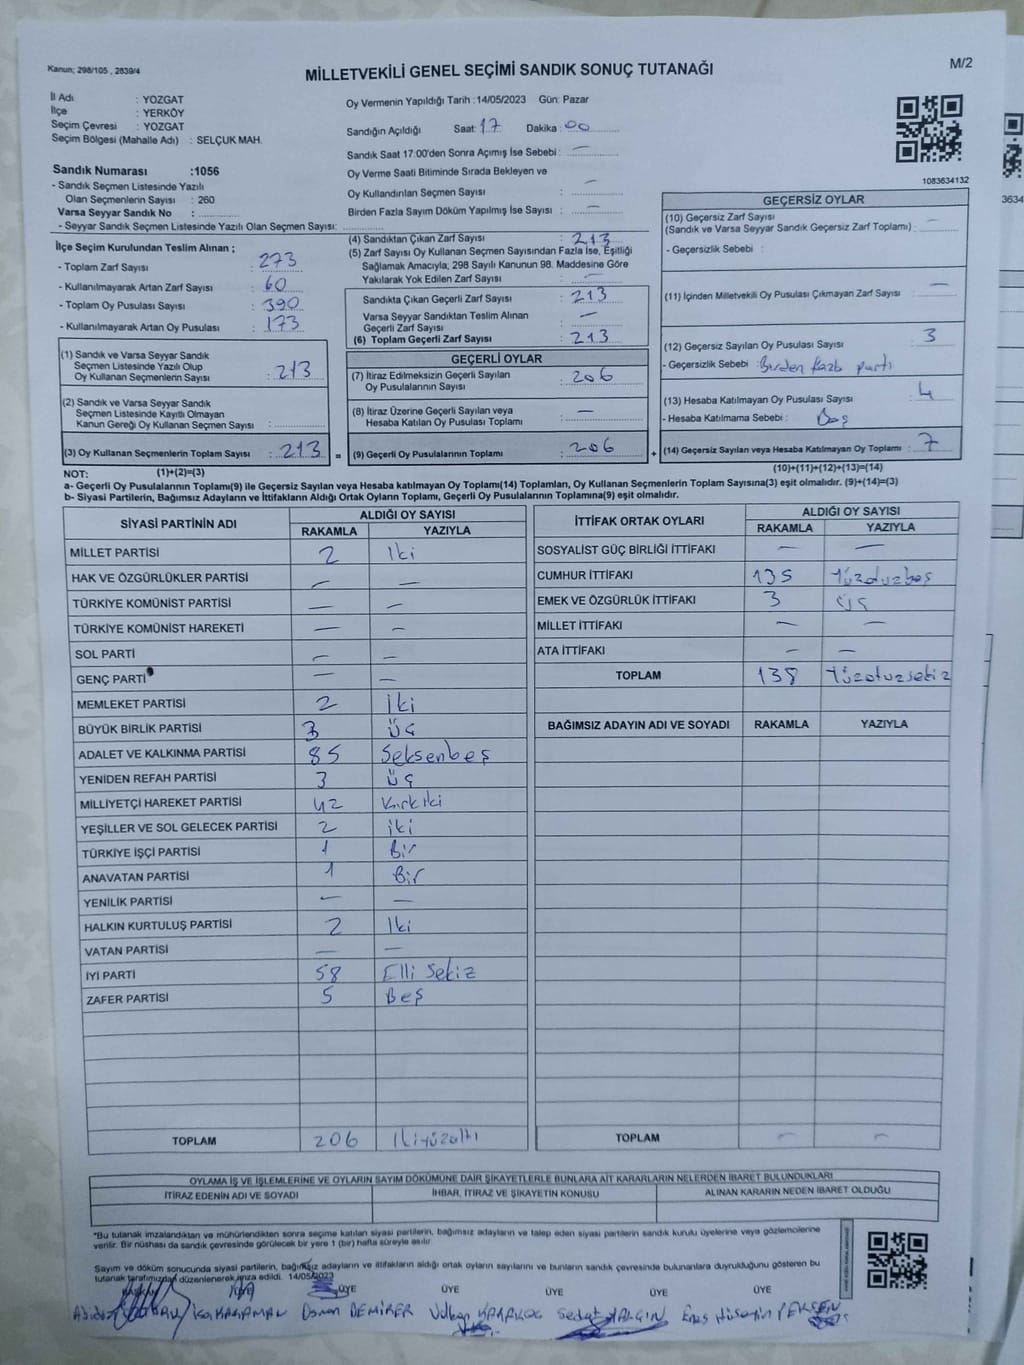 Kanun; 298/105 , 2839/4
MİLLETVEKİLİ GENEL SEÇİMİ SANDIK SONUÇ TUTANAĞI
M/2
İl Adı : YOZGAT
İlçe : YERKÖY
Seçim Çevresi : YOZGAT
Seçim Bölgesi (Mahalle Adı) : SELÇUK MAH.
Oy Vermenin Yapıldığı Tarih :14/05/2023 Gün: Pazar
Sandığın Açıldığı Saat: 17 Dakika : 00
Sandık Saat 17:00'den Sonra Açımış İse Sebebi : —
Oy Verme Saati Bitiminde Sırada Bekleyen ve
Oy Kullandırılan Seçmen Sayısı : —
Birden Fazla Sayım Döküm Yapılmış İse Sayısı : —
1083634132
Sandık Numarası :1056
- Sandık Seçmen Listesinde Yazılı
Olan Seçmenlerin Sayısı : 260
Varsa Seyyar Sandık No :
- Seyyar Sandık Seçmen Listesinde Yazılı Olan Seçmen Sayısı:
İlçe Seçim Kurulundan Teslim Alınan ;
- Toplam Zarf Sayısı : 273
- Kullanılmayarak Artan Zarf Sayısı : 60
- Toplam Oy Pusulası Sayısı : 390
- Kullanılmayarak Artan Oy Pusulası : 173
(1) Sandık ve Varsa Seyyar Sandık
Seçmen Listesinde Yazılı Olup
Oy Kullanan Seçmenlerin Sayısı : 213
(2) Sandık ve Varsa Seyyar Sandık
Seçmen Listesinde Kayıtlı Olmayan
Kanun Gereği Oy Kullanan Seçmen Sayısı :
(3) Oy Kullanan Seçmenlerin Toplam Sayısı : 213 =
(4) Sandıktan Çıkan Zarf Sayısı : 213
(5) Zarf Sayısı Oy Kullanan Seçmen Sayısından Fazla İse, Eşitliği
Sağlamak Amacıyla; 298 Sayılı Kanunun 98. Maddesine Göre
Yakılarak Yok Edilen Zarf Sayısı : —
Sandıkta Çıkan Geçerli Zarf Sayısı : 213
Varsa Seyyar Sandıktan Teslim Alınan
Geçerli Zarf Sayısı : —
(6) Toplam Geçerli Zarf Sayısı : 213
GEÇERLİ OYLAR
(7) İtiraz Edilmeksizin Geçerli Sayılan
Oy Pusulalarının Sayısı : 206
(8) İtiraz Üzerine Geçerli Sayılan veya
Hesaba Katılan Oy Pusulası Toplamı : —
(9) Geçerli Oy Pusulalarının Toplamı : 206 +
GEÇERSİZ OYLAR
(10) Geçersiz Zarf Sayısı
(Sandık ve Varsa Seyyar Sandık Geçersiz Zarf Toplamı) : —
- Geçersizlik Sebebi :
(11) İçinden Milletvekili Oy Pusulası Çıkmayan Zarf Sayısı : —
(12) Geçersiz Sayılan Oy Pusulası Sayısı : 3
- Geçersizlik Sebebi : Birden fazla parti
(13) Hesaba Katılmayan Oy Pusulası Sayısı : 4
- Hesaba Katılmama Sebebi : Boş
(14) Geçersiz Sayılan veya Hesaba Katılmayan Oy Toplamı : 7
(10)+(11)+(12)+(13)=(14)
NOT: (1)+(2)=(3)
a- Geçerli Oy Pusulalarının Toplamı(9) ile Geçersiz Sayılan veya Hesaba katılmayan Oy Toplamı(14) Toplamları, Oy Kullanan Seçmenlerin Toplam Sayısına(3) eşit olmalıdır. (9)+(14)=(3)
b- Siyasi Partilerin, Bağımsız Adayların ve İttifakların Aldığı Ortak Oyların Toplamı, Geçerli Oy Pusulalarının Toplamına(9) eşit olmalıdır.
SİYASİ PARTİNİN ADI ALDIĞI OY SAYISI
RAKAMLA YAZIYLA
MİLLET PARTİSİ 2 İki
HAK VE ÖZGÜRLÜKLER PARTİSİ — —
TÜRKİYE KOMÜNİST PARTİSİ — —
TÜRKİYE KOMÜNİST HAREKETİ — —
SOL PARTİ — —
GENÇ PARTİ — —
MEMLEKET PARTİSİ 2 İki
BÜYÜK BİRLİK PARTİSİ 3 Üç
ADALET VE KALKINMA PARTİSİ 85 Seksenbeş
YENİDEN REFAH PARTİSİ 3 Üç
MİLLİYETÇİ HAREKET PARTİSİ 42 Kırkiki
YEŞİLLER VE SOL GELECEK PARTİSİ 2 iki
TÜRKİYE İŞÇİ PARTİSİ 1 Bir
ANAVATAN PARTİSİ 1 Bir
YENİLİK PARTİSİ — —
HALKIN KURTULUŞ PARTİSİ 2 İki
VATAN PARTİSİ — —
İYİ PARTİ 58 Elli Sekiz
ZAFER PARTİSİ 5 Beş
TOPLAM 206 İkiyüzaltı
İTTİFAK ORTAK OYLARI ALDIĞI OY SAYISI
RAKAMLA YAZIYLA
SOSYALİST GÜÇ BİRLİĞİ İTTİFAKI — —
CUMHUR İTTİFAKI 135 Yüzotuzbeş
EMEK VE ÖZGÜRLÜK İTTİFAKI 3 Üç
MİLLET İTTİFAKI — —
ATA İTTİFAKI — —
TOPLAM 138 Yüzotuzsekiz
BAĞIMSIZ ADAYIN ADI VE SOYADI RAKAMLA YAZIYLA
TOPLAM — —
OYLAMA İŞ VE İŞLEMLERİNE VE OYLARIN SAYIM DÖKÜMÜNE DAİR ŞİKAYETLERLE BUNLARA AİT KARARLARIN NELERDEN İBARET BULUNDUKLARI
İTİRAZ EDENİN ADI VE SOYADI İHBAR, İTİRAZ VE ŞİKAYETİN KONUSU ALINAN KARARIN NEDEN İBARET OLDUĞU
*Bu tutanak imzalandıktan ve mühürlendikten sonra seçime katılan siyasi partilerin, bağımsız adayların ve talep eden siyasi partilerin sandık kurulu üyelerine veya gözlemcilerine
verilir. Bir nüshası da sandık çevresinde görülecek bir yere 1 (bir) hafta süreyle asılır.
Sayım ve döküm sonucunda siyasi partilerin, bağımsız adayların ve ittifakların aldığı ortak oyların sayılarını ve bunların sandık çevresinde bulunanlara duyrulduğunu gösteren bu
tutanak tarafımızdan düzenlenerek imza edildi. 14/05/2023
ÜYE ÜYE ÜYE ÜYE ÜYE
KARAMAN Osman DEMİRER Volkan Sedat YALÇIN Enes Hüseyin